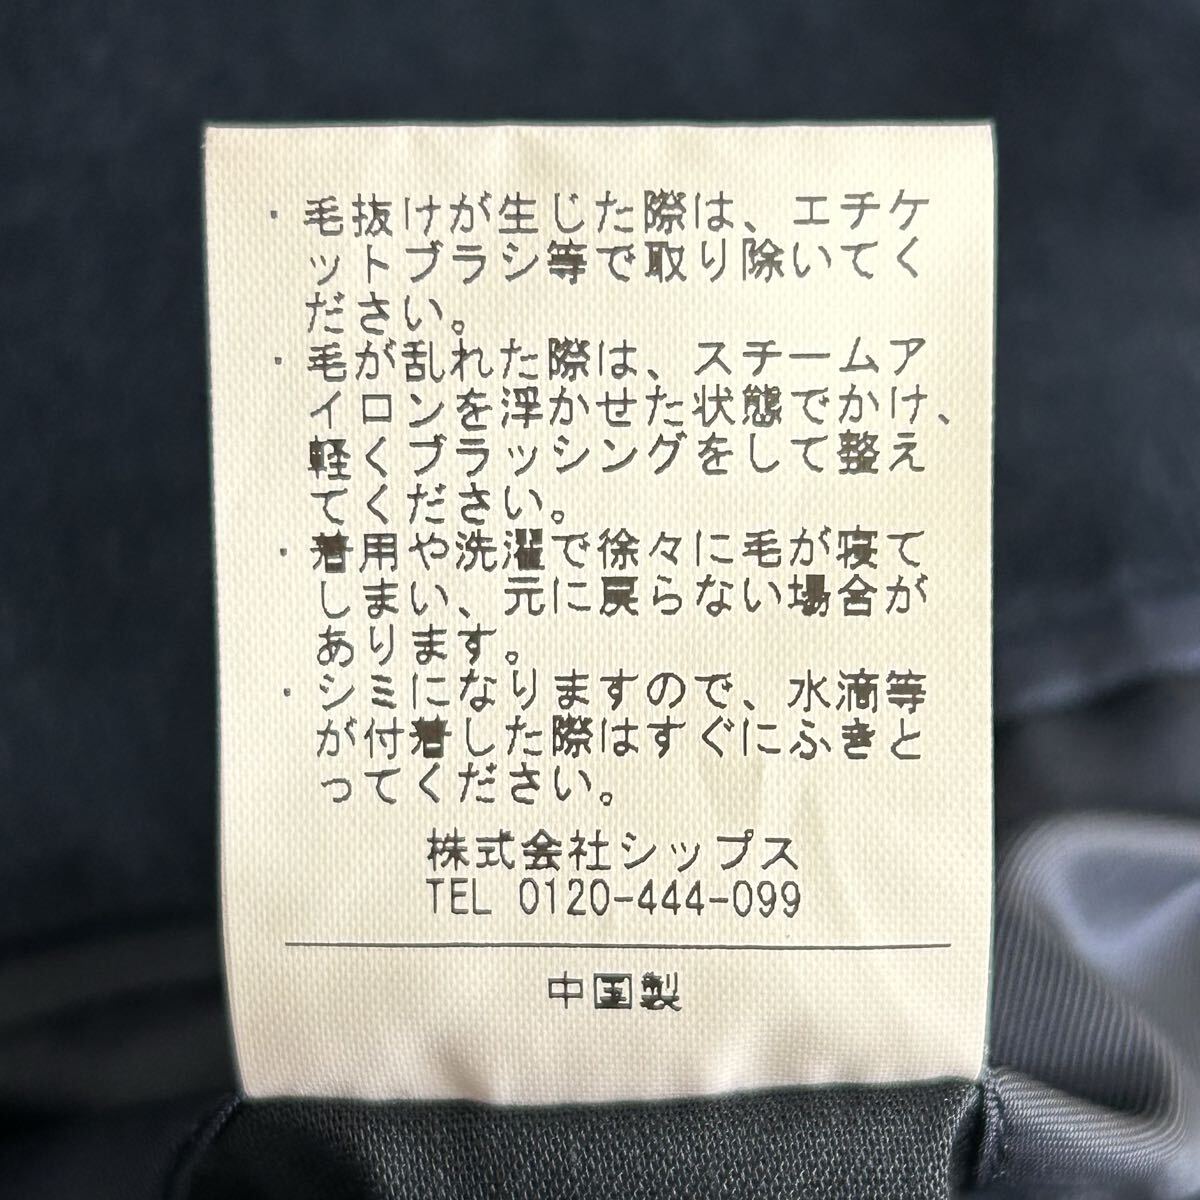 ・毛抜けが生じた際は、エチケ
ットブラシ等で取り除いてく
ださい。
・毛が乱れた際は、スチームア
イロンを浮かせた状態でかけ、
軽くブラッシングをして整え
てください。
・着用や洗濯で徐々に毛が寝て
しまい、元に戻らない場合が
あります。
・シミになりますので、水滴等
が付着した際はすぐにふきと
ってください。
株式会社シップス
TEL 0120-444-099
中国製